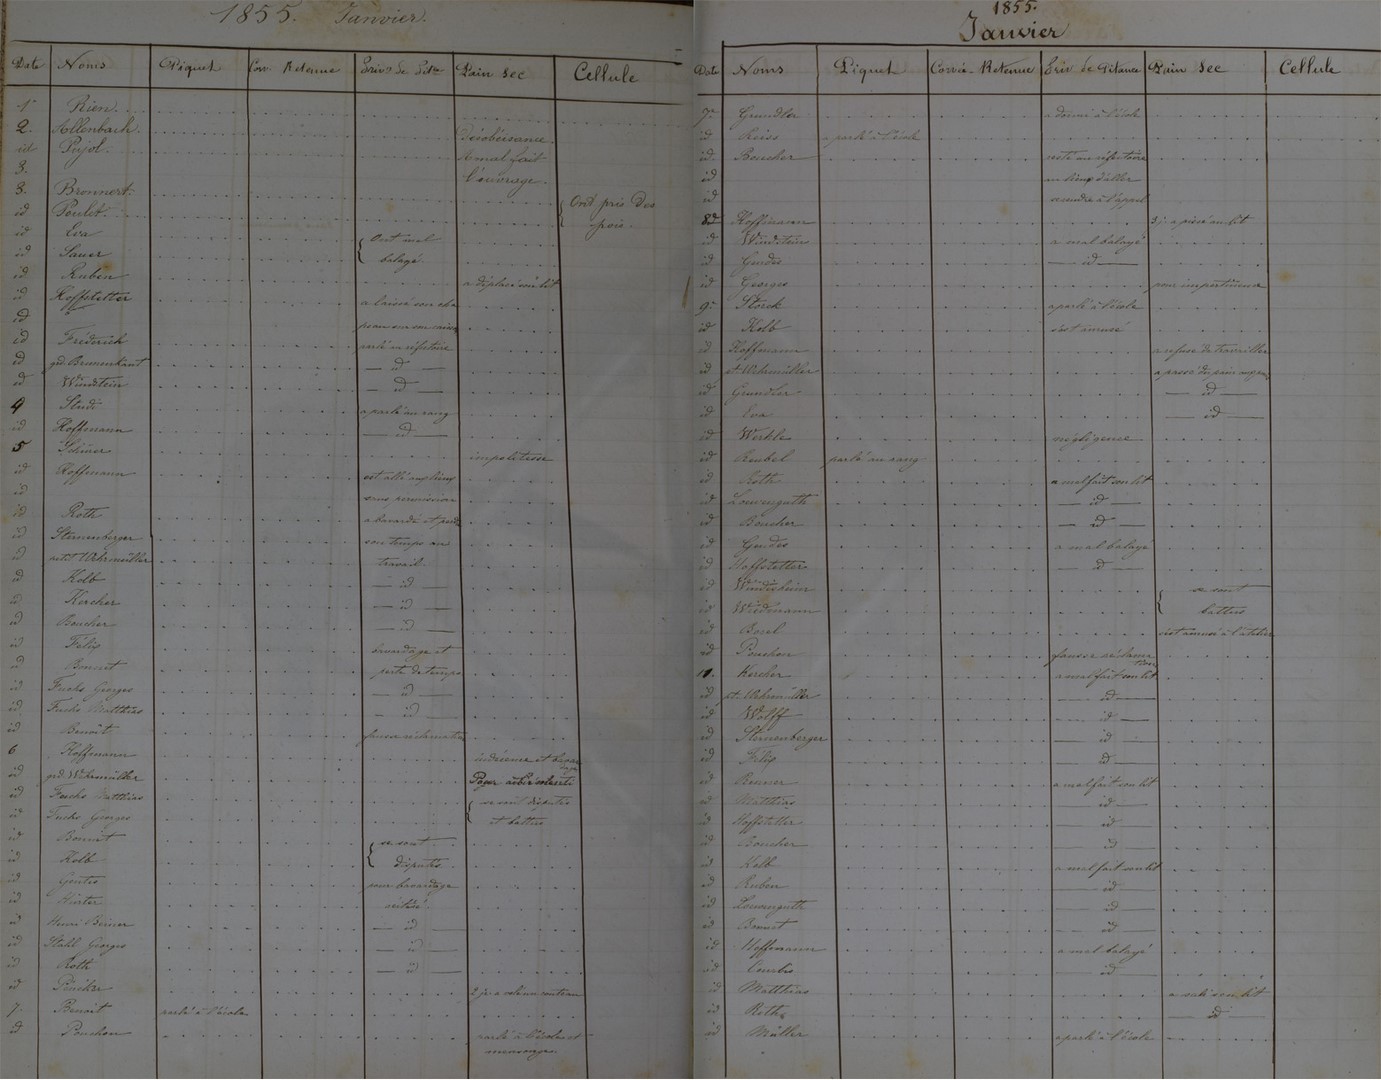 1855. Janvier.
Date Noms Piquet Corv. Retenue Priv. de Pit. Pain sec Cellule
1er Rien
2. Allenbach Désobéisance.
id Pujol. A mal fait
3. l'ouvrage.
3. Bronnert Ont pris Des
id Poulet pois.
id Eva Ont mal
id Sauer balayé
id Ruben a déplacé son lit
id Hoffstetter a laissé son cha
id peau sur son
id Fréderick parlé au réfectoire
id gd. id
id Windstein id
4 a parlé au rang
id Hoffmann id
5 impolitesse
id Hoffmann est allé aux lieux
id sans permission
id Roth a bavardé et perdu
id Sternenberger son temps au
id Wehrmüller travail
id Kolb id
id Kercher id
id Boucher id
id Félix bavardage et
id Bonnet perte de temps
id Fuchs Georges id
id Fuchs Matthias id
id Benoit fausse réclamation
6 Hoffmann indécence et
id gd. Wehrmüller
id Fuchs Matthias se sont disputés
id Fuchs Georges et battus
id Bonnet se sont
id Kolb disputés
id pour bavardage
id réitéré
id Henri id
id Stahl Georges id
id Roth id
id 2 j. a volé un couteau
7. Benoit parlé à l'école
id Pouchon parlé à l'école et
mensonge.
1855.
Janvier
Date Noms Piquet Corvée Retenue Priv. de Pitance Pain sec Cellule
7e Grundler a dormi à l'école
id Reiss a parlé à l'école
id. Boucher resté au réfectoire
id au lieu d'aller
id se rendre à l'appel
8e Hoffmann 3 j. a pissé au lit
id a mal balayé
id id
id Georges pour impertinence
9e Storck a parlé à l'école
id Kolb s'est amusé
id Hoffmann a refusé de travailler
id Wehrmüller a passé du pain
id Grundler id
id Eva id
id négligence
id parlé au rang
id Roth a mal fait son lit
id Louvenguth id
id Boucher id
id a mal balayé
id Hoffstetter id
id se sont
id Wiedmann battus
id s'est amusé à l'atelier
id Pouchon fausse réclama
tion
11. Kercher a mal fait son lit
id Wehrmüller id
id Wolff id
id Sternenberger id
id Félix id
id a mal fait son lit
id Matthias id
id Hoffstetter id
id Boucher id
id Kolb a mal fait son lit
id Ruben id
id Louvenguth id
id Bonnet id
id Hoffmann a mal balayé
id id
id Matthias a sali son lit
id Roth id
id Müller a parlé à l'école